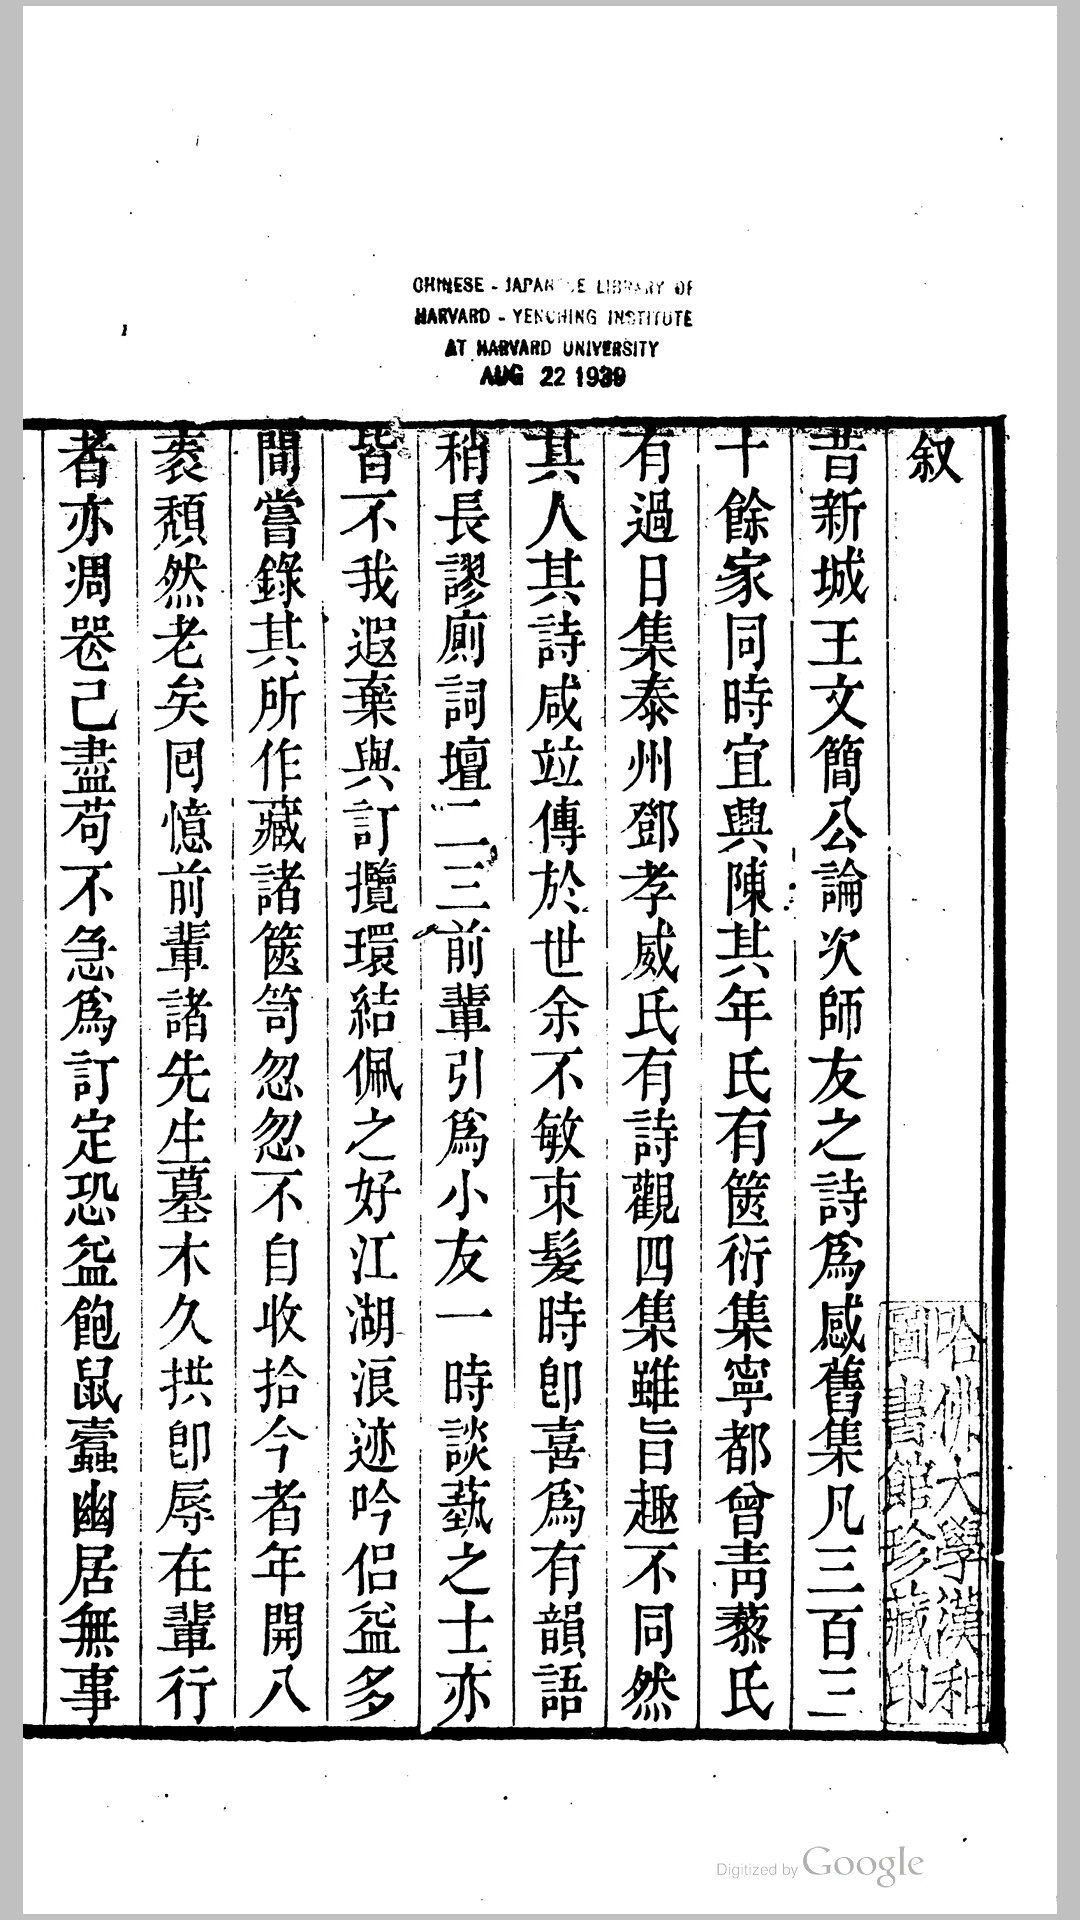 CHINESE - JAPANESE LIBRARY OF
HARVARD - YENCHING INSTITUTE
AT HARVARD UNIVERSITY
AUG 22 1939
叙
昔新城王文簡公論次師友之詩爲感舊集凡三百三
十餘家同時宜興陳其年氏有篋衍集寧都曾青藜氏
有過日集泰州鄧孝威氏有詩觀四集雖旨趣不同然
其人其詩咸竝傳於世余不敏朿髮時卽喜爲有韻語
稍長謬厠詞壇二三前輩引爲小友一時談蓺之士亦
皆不我遐棄與訂攬環結佩之好江湖浪迹吟侶益多
間嘗錄其所作藏諸篋笥忽忽不自收拾今者年開八
袠頹然老矣囘憶前輩諸先生墓木久拱卽辱在輩行
者亦凋喪己盡苟不急爲訂定恐益飽鼠蠹幽居無事
哈佛大學漢和
圖書館珍藏印
Digitized by Google